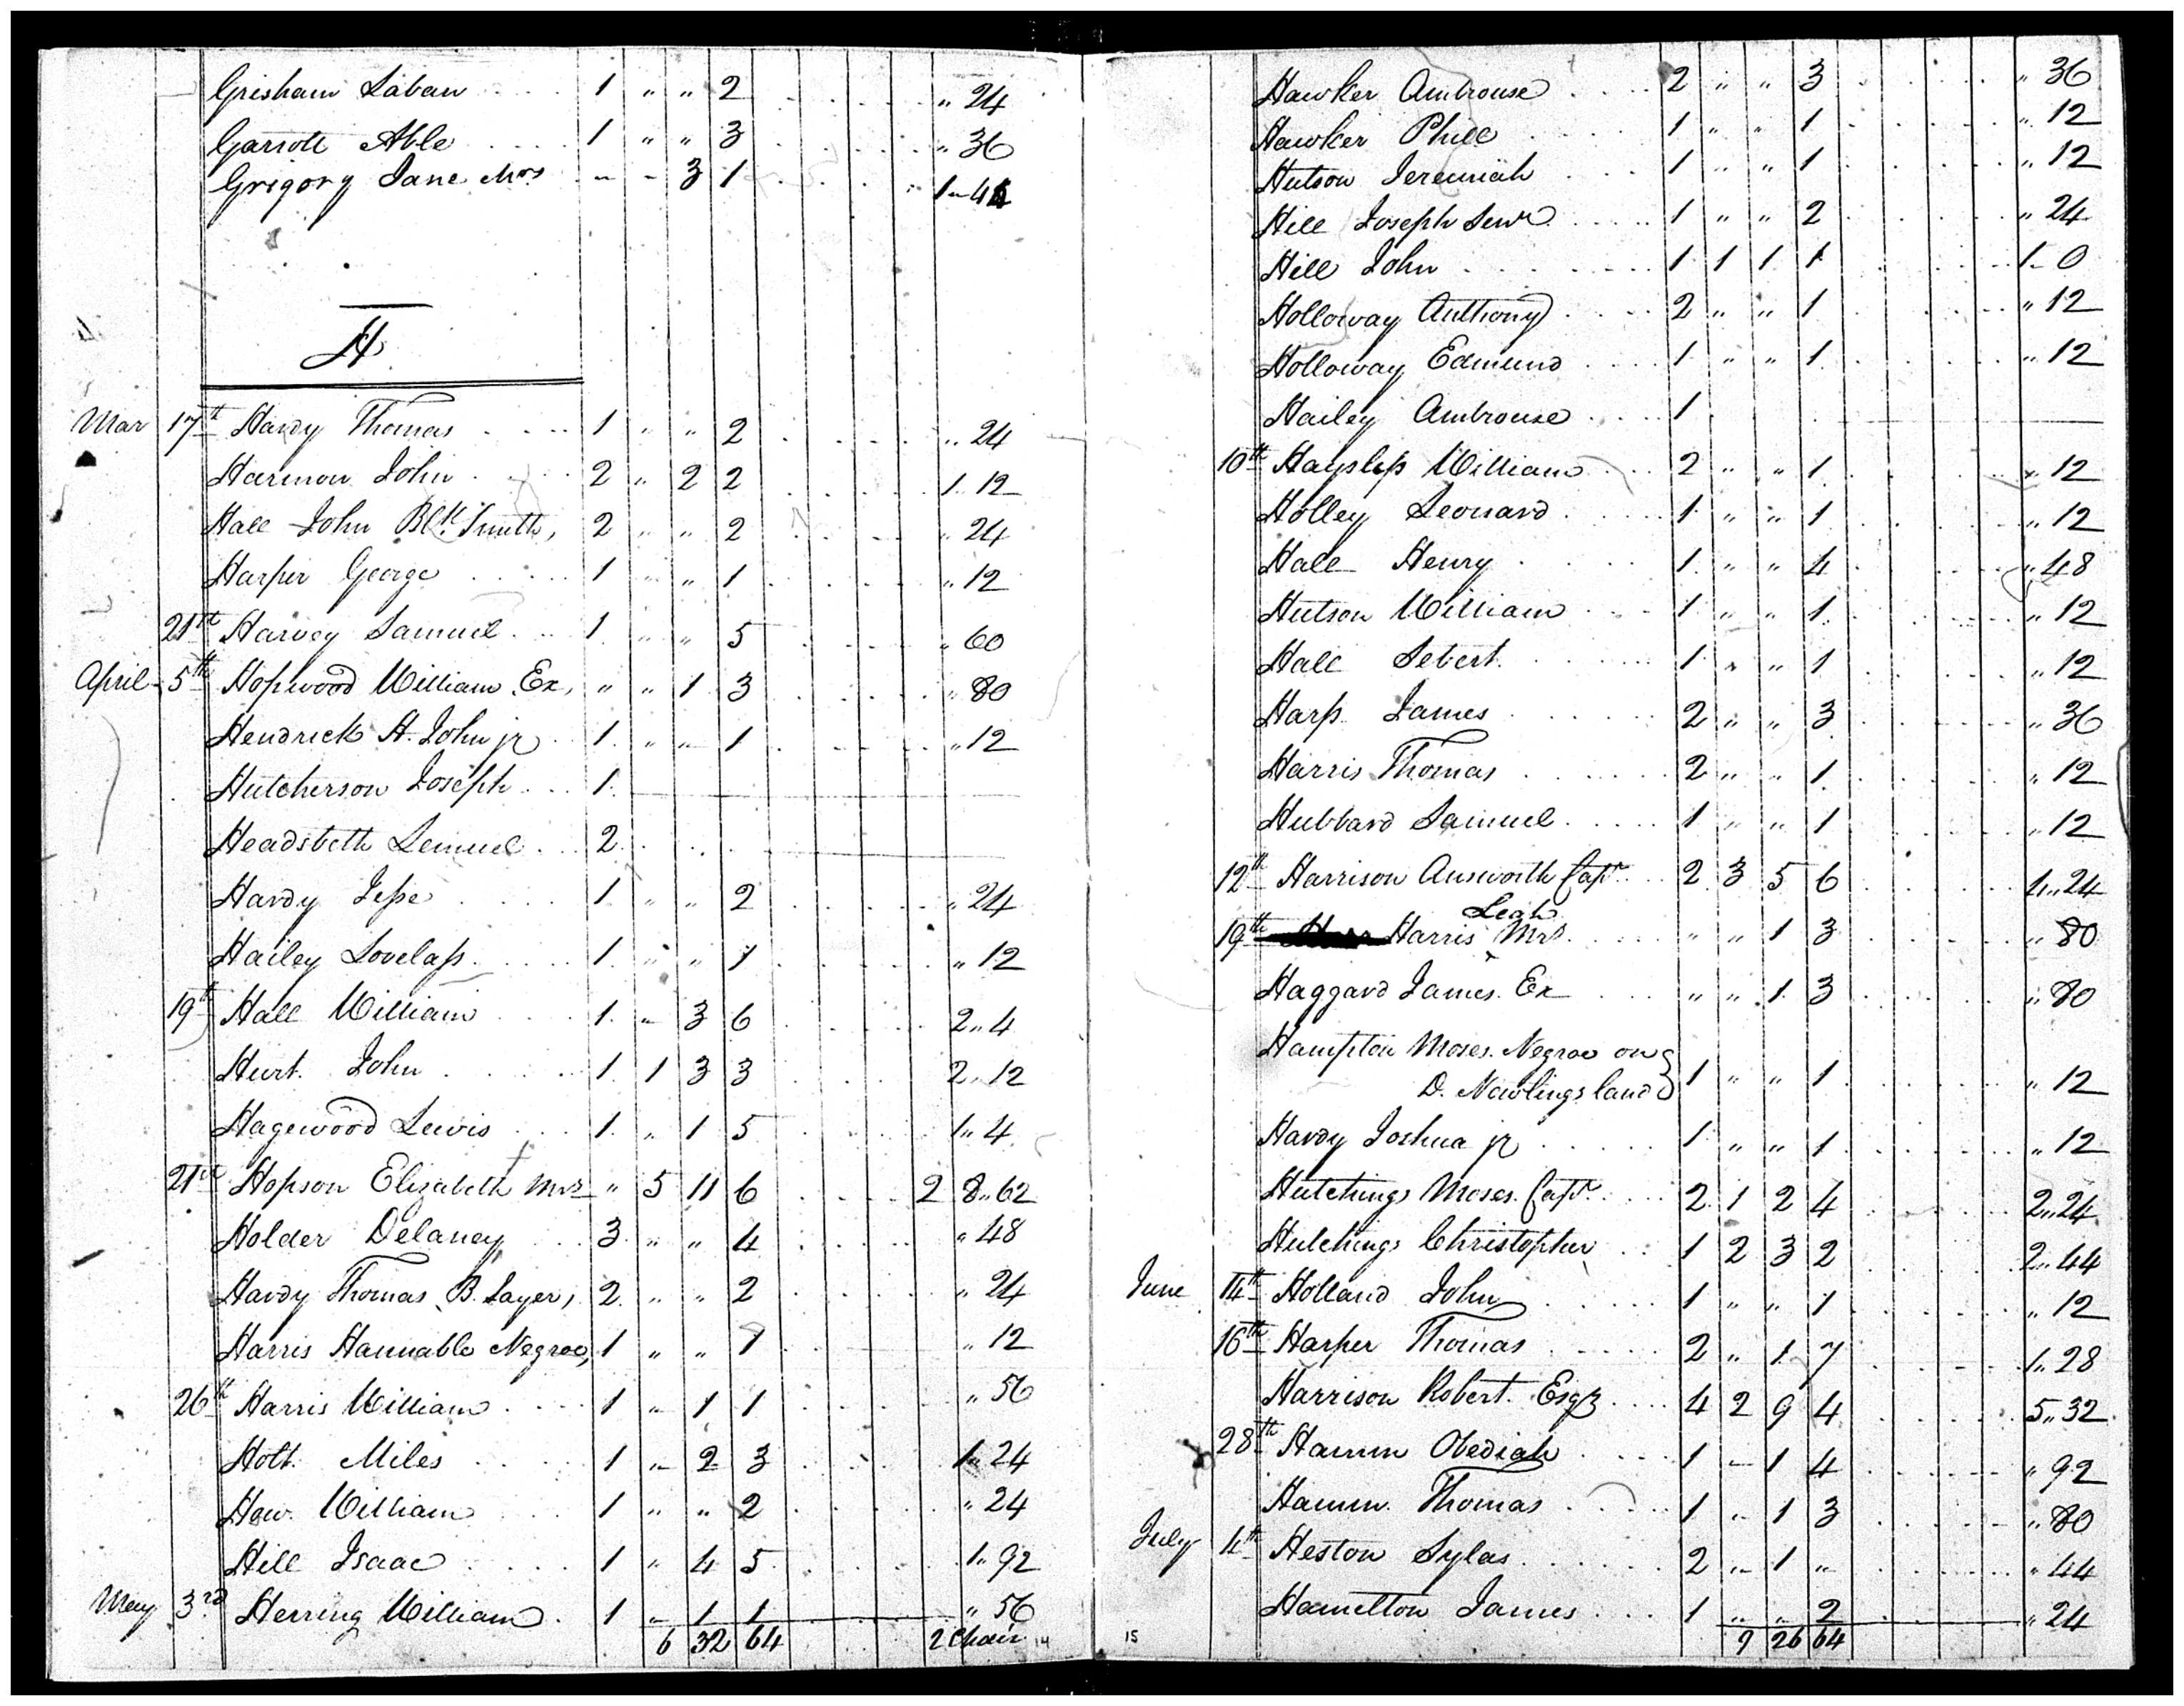 Grisham Laban 1 " " 2 " 24
Garrott Able 1 " " 3 " 36
Grigory Jane Mrs - - 3 1 1 - 44
H
Mar 17th Hardy Thomas 1 " " 2 " 24
Harmon John 2 " 2 2 1 " 12
Hall John Blk Smith, 2 " " 2 " 24
Harper George 1 " " 1 " 12
21st Harvey Samuel 1 " " 5 " 60
April 5th Hopwood William Ex, " " 1 3 " 80
Hendrick H. John jr 1 " " 1 " 12
Hutcherson Joseph 1
Headsbeth Lemuel 2
Hardy Jesse 1 " " 2 " 24
Hailey Lovelass 1 " " 1 " 12
19th Hall William 1 " 3 6 2 " 4
Hurt John 1 1 3 3 2 " 12
Hagewood Lewis 1 " 1 5 1 " 4
21st Hopson Elizabeth Mrs " 5 11 6 2 8 " 62
Holder Delaney 3 " " 4 " 48
Hardy Thomas B. Layer, 2 " " 2 " 24
Harris Hannable Negroe, 1 " " 1 " 12
26th Harris William 1 " 1 1 " 56
Holt Miles 1 " 2 3 1 " 24
Hew William 1 " " 2 " 24
Hill Isaac 1 " 4 5 1 " 92
May 3rd Herring William 1 " 1 1 " 56
6 32 64 2 Chair 14
Hawker Ambrouse 2 " " 3 " 36
Hawker Phill 1 " " 1 " 12
Hutson Jeremiah 1 " " 1 " 12
Hill Joseph Senr 1 " " 2 " 24
Hill John 1 1 1 1 1 - 0
Holloway Anthony 2 " " 1 " 12
Holloway Edmund 1 " " 1 " 12
Hailey Ambrouse 1
10th Hayslip William 2 " " 1 " 12
Holley Leonard 1 " " 1 " 12
Hall Henry 1 " " 4 " 48
Hutson William 1 " " 1 " 12
Hall Sebert 1 " " 1 " 12
Harp James 2 " " 3 " 36
Harris Thomas 2 " " 1 " 12
Hubbard Samuel 1 " " 1 " 12
12th Harrison Ausworth Capt. 2 3 5 6 4 " 24
Leah
19th Harris Mrs. " " 1 3 " 80
Haggard James Ex " " 1 3 " 80
Hampton Moses Negroe on
D. Nowlings land 1 " " 1 " 12
Hardy Joshua jr 1 " " 1 " 12
Hutchings Moses Capt. 2 1 2 4 2 " 24
Hutchings Christopher 1 2 3 2 2 " 44
June 14th Holland John 1 " " 1 " 12
16th Harper Thomas 2 " 1 7 1 " 28
Harrison Robert Esqr 4 2 9 4 5 " 32
28th Hamm Obediah 1 - 1 4 " 92
Hamm Thomas 1 " 1 3 " 80
July 4th Heston Sylas 2 " 1 " " 44
Hamelton James 1 " " 2 " 24
15 9 26 64